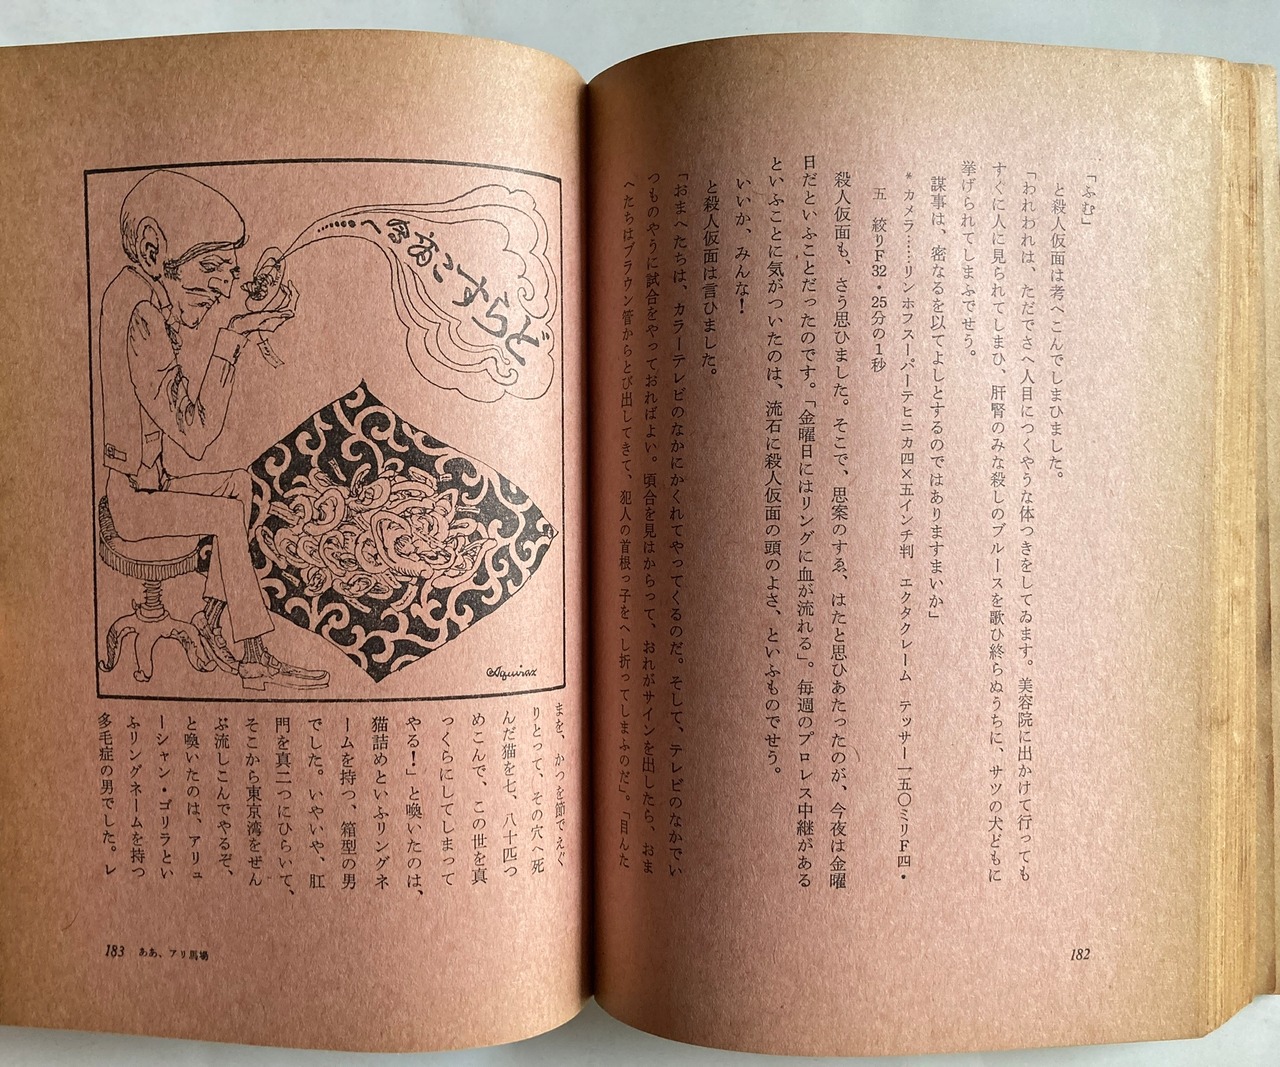 「ふむ」
と殺人仮面は考へこんでしまひました。
「われわれは、ただでさへ人目につくやうな体つきをしてゐます。美容院に出かけて行っても
すぐに人に見られてしまひ、肝腎のみな殺しのブルースを歌ひ終らぬうちに、サツの犬どもに
挙げられてしまふでせう。
謀事は、密なるを以てよしとするのではありますまいか」
*カメラ……リンホフスーパーテヒニカ四×五インチ判 エクタクレーム テッサー一五〇ミリF四・
五 絞りF32・25分の1秒
殺人仮面も、さう思ひました。そこで、思案のすゑ、はたと思ひあたったのが、今夜は金曜
日だといふことだったのです。「金曜日にはリングに血が流れる」。毎週のプロレス中継がある
といふことに気がついたのは、流石に殺人仮面の頭のよさ、といふものでせう。
いいか、みんな!
と殺人仮面は言ひました。
「おまへたちは、カラーテレビのなかにかくれてやってくるのだ。そして、テレビのなかでい
つものやうに試合をやっておればよい。頃合を見はからって、おれがサインを出したら、おま
へたちはブラウン管からとび出してきて、犯人の首根っ子をへし折ってしまふのだ」。「目んた
182
どらすこ密會へ……
Aguirax
まを、かつを節でえぐ
りとって、その穴へ死
んだ猫を七、八十匹つ
めこんで、この世を真
っくらにしてしまって
やる!」と喚いたのは、
猫詰めといふリングネ
ームを持つ、箱型の男
でした。いやいや、肛
門を真二つにひらいて、
そこから東京湾をぜん
ぶ流しこんでやるぞ、
と喚いたのは、アリュ
ーシャン・ゴリラとい
ふリングネームを持つ
多毛症の男でした。レ
183 ああ、アリ馬場